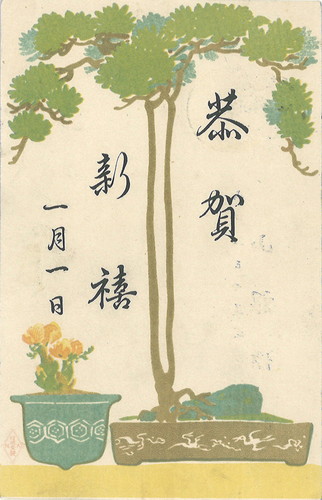 恭賀
新禧
一月一日